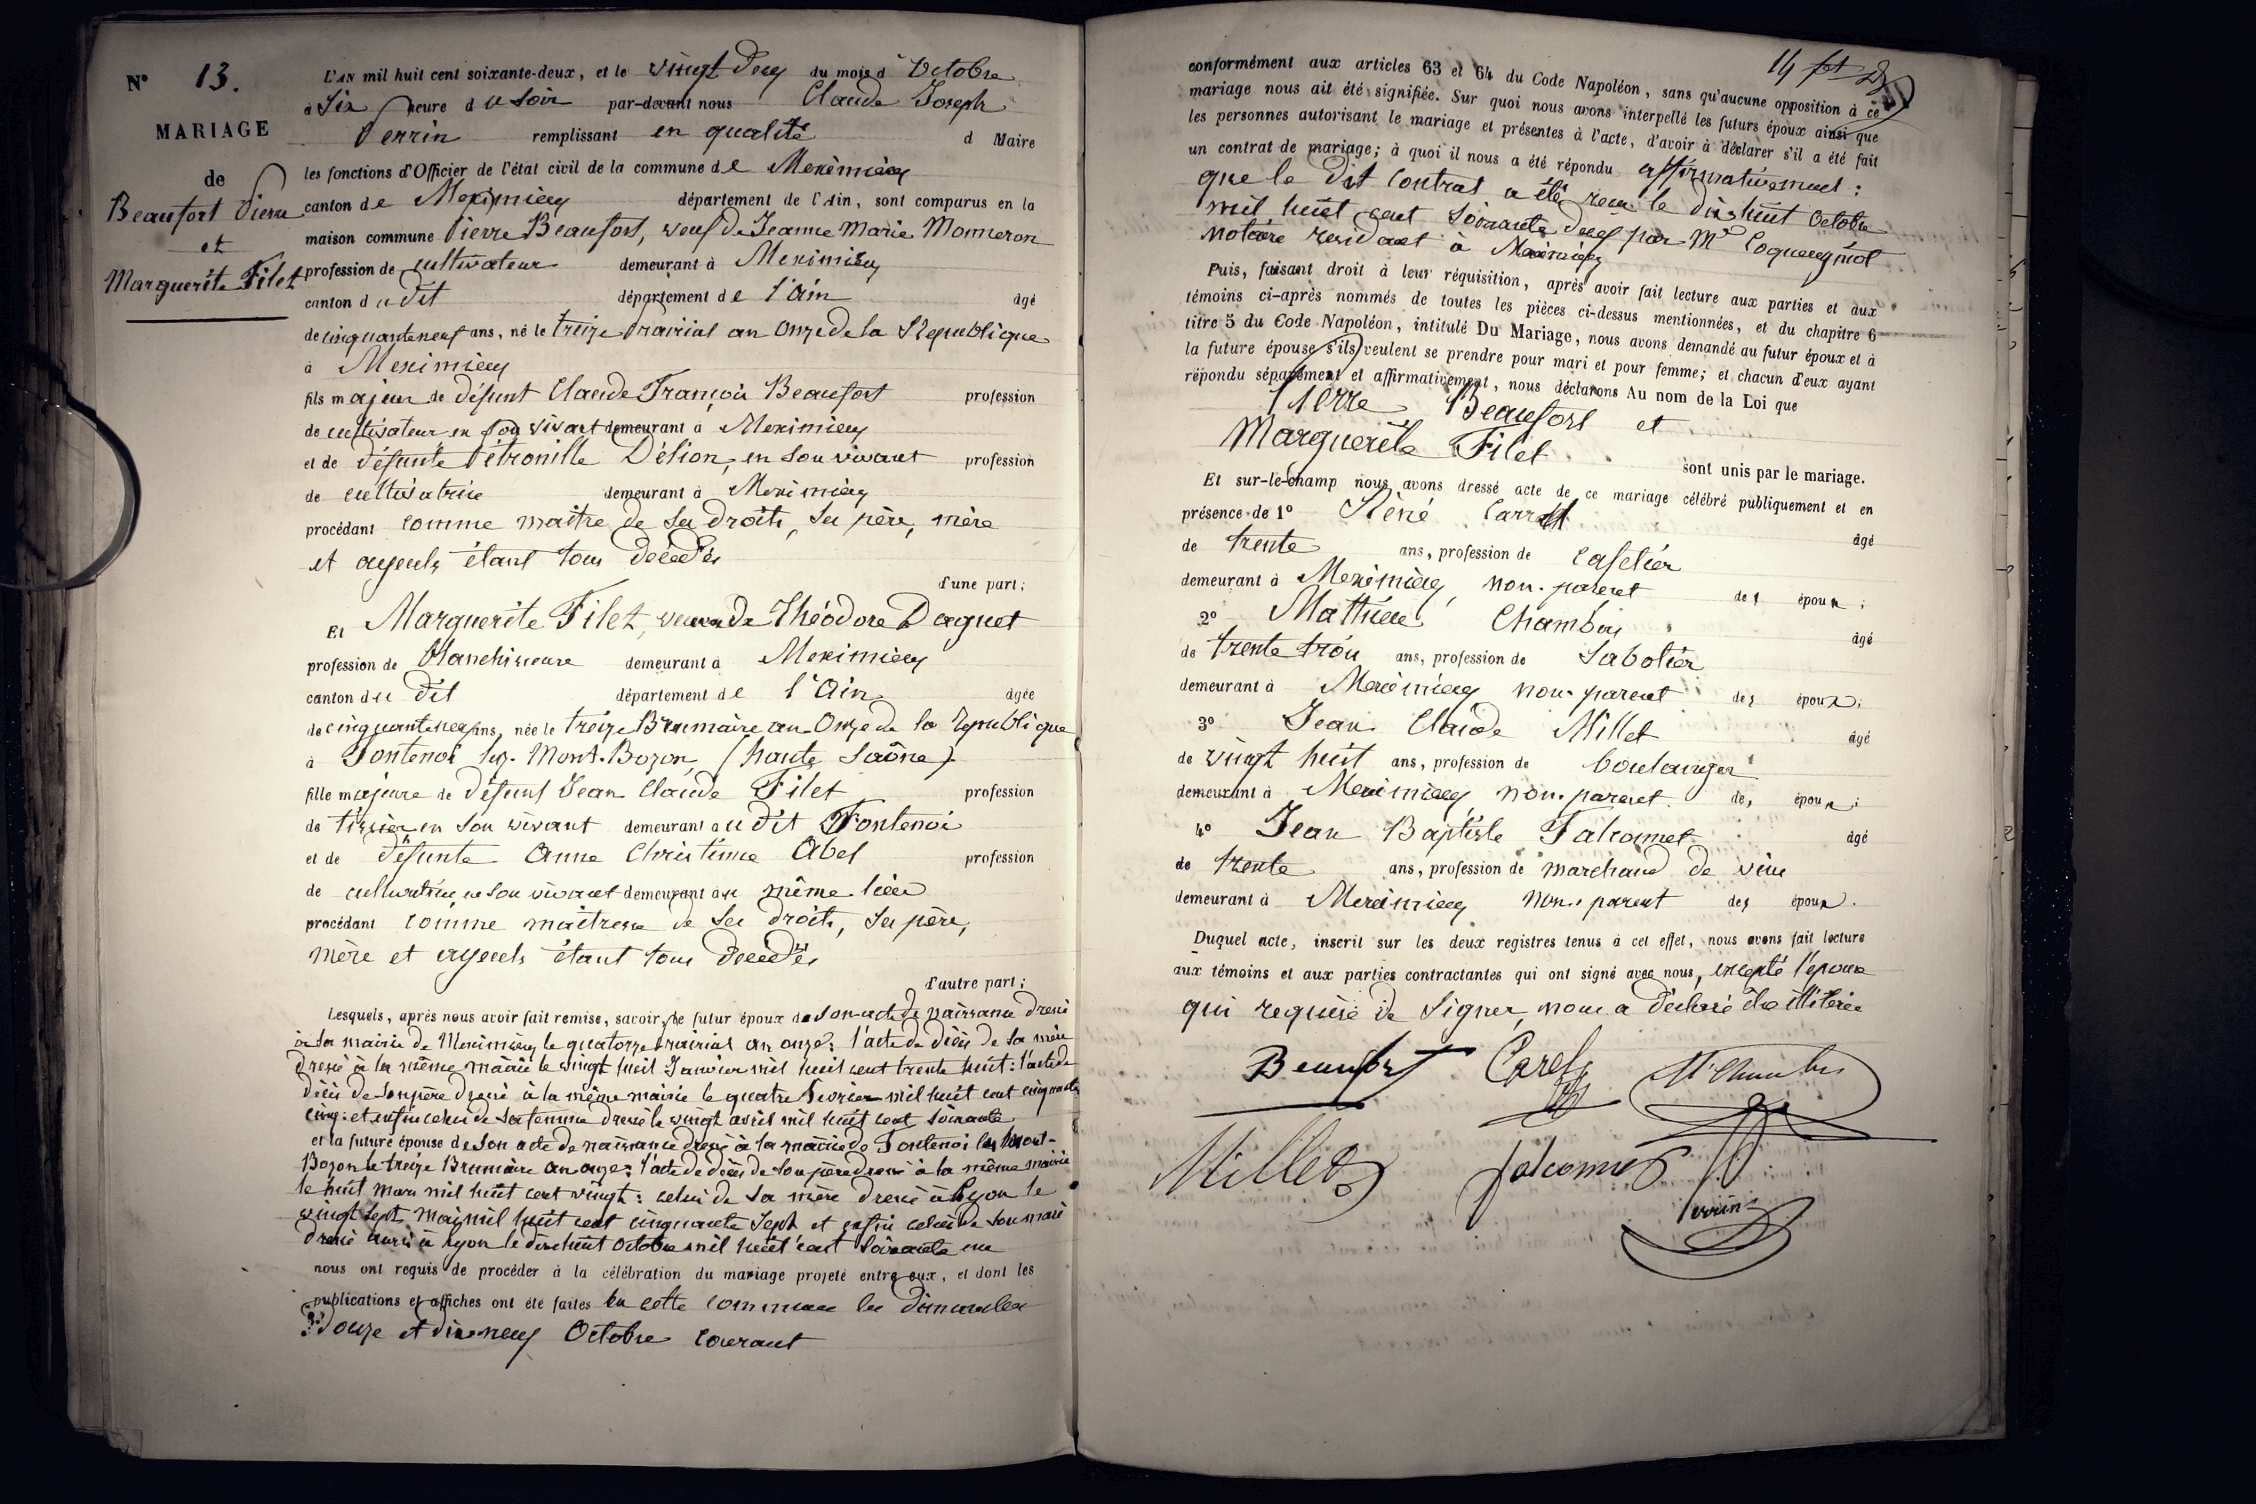 N° 13.
MARIAGE
de
Beaufort Pierre
et
Marguerite Filet
L'AN mil huit cent soixante-deux, et le vingt deux du mois d'Octobre
à Six heure du soir par-devant nous Claude Joseph
Perrin remplissant en qualité d Maire
les fonctions d'Officier de l'état civil de la commune de Meximieux
canton de Meximieux département de l'Ain, sont comparus en la
maison commune Pierre Beaufort, veuf de Jeanne Marie Momeron
profession de cultivateur demeurant à Meximieux
canton du dit département de l'Ain âgé
de cinquante neuf ans, né le treize Prairial an Onze de la République
à Meximieux
fils majeur de défunt Claude François Beaufort profession
de cultivateur en son vivant demeurant à Meximieux
et de défunte Pétronille Délion, en son vivant profession
de cultivatrice demeurant à Meximieux
procédant comme maître de ses droits, ses père, mère
et ayeuls étant tous décédés
d'une part;
Et Marguerite Filet, veuve de Théodore Daguet
profession de Blanchisseuse demeurant à Meximieux
canton du dit département de l'Ain âgée
de cinquante neuf ans, née le treize Brumaire an Onze de la République
à Fontenoi les Mont-Bozon, (haute Saône)
fille majeure de défunt Jean Claude Filet profession
de tissier en son vivant demeurant au dit Fontenoi
et de défunte Anne Christinne Abel profession
de cultivatrice en son vivant demeurant au même lieu
procédant comme maitresse de ses droits, ses père,
mère et ayeuls étant tous décédés
d'autre part;
Lesquels, après nous avoir fait remise, savoir, le futur époux de son acte de naissance dressé
à la mairie de Meximieux le quatorze Prairial an onze; l'acte de décès de sa mère
dressé à la même mairie le vingt huit Janvier mil huit cent trente huit: l'acte de
décès de son père dressé à la même mairie le quatre Fevrier mil huit cent cinquante
cinq: et enfin celui de sa femme dressé le vingt avril mil huit cent soixante
et la future épouse de son acte de naissance dressé à la mairie de Fontenoi les Mont-
Bozon le treize Brumaire an onze: l'acte de décès de son père dressé à la même mairie
le huit mars mil huit cent vingt: celui de sa mère dressé à Lyon le
vingt sept mai mil huit cent cinquante sept et enfin celui de son mari
dressé aussi à Lyon le dix huit Octobre mil huit cent soixante un
nous ont requis de procéder à la célébration du mariage projeté entre eux, et dont les
publications et affiches ont été faites en cette commune les dimanches
douze et dix neuf Octobre courant
14
conformément aux articles 63 et 64 du Code Napoléon, sans qu'aucune opposition à ce
mariage nous ait été signifiée. Sur quoi nous avons interpellé les futurs époux ainsi que
les personnes autorisant le mariage et présentes à l'acte, d'avoir à déclarer s'il a été fait
un contrat de mariage; à quoi il nous a été répondu affirmativement:
que le dit contrat a été reçu le dix huit Octobre
mil huit cent soixante deux par Me
notaire résidant à Meximieux
Puis, faisant droit à leur réquisition, après avoir fait lecture aux parties et aux
témoins ci-après nommés de toutes les pièces ci-dessus mentionnées, et du chapitre 6
titre 5 du Code Napoléon, intitulé Du Mariage, nous avons demandé au futur époux et à
la future épouse s'ils veulent se prendre pour mari et pour femme; et chacun d'eux ayant
répondu séparément et affirmativement, nous déclarons Au nom de la Loi que
Pierre Beaufort et
Marguerite Filet
sont unis par le mariage.
Et sur-le-champ nous avons dressé acte de ce mariage célébré publiquement et en
présence de 1° Réné âgé
de trente ans, profession de cafetier
demeurant à Meximieux, non parent des époux;
2° Mathieu Chambin âgé
de trente trois ans, profession de Sabotier
demeurant à Meximieux non parent des époux;
3° Jean Claude Millet âgé
de vingt huit ans, profession de boulanger
demeurant à Meximieux, non parent des époux;
4° Jean Baptiste Falconnet âgé
de trente ans, profession de marchand de vin
demeurant à Meximieux non parent des époux.
Duquel acte, inscrit sur les deux registres tenus à cet effet, nous avons fait lecture
aux témoins et aux parties contractantes qui ont signé avec nous, excepté l'épouse
qui requise de signer, nous a déclaré être illitérée
Beaufort
Millet Falconnet
Perrin